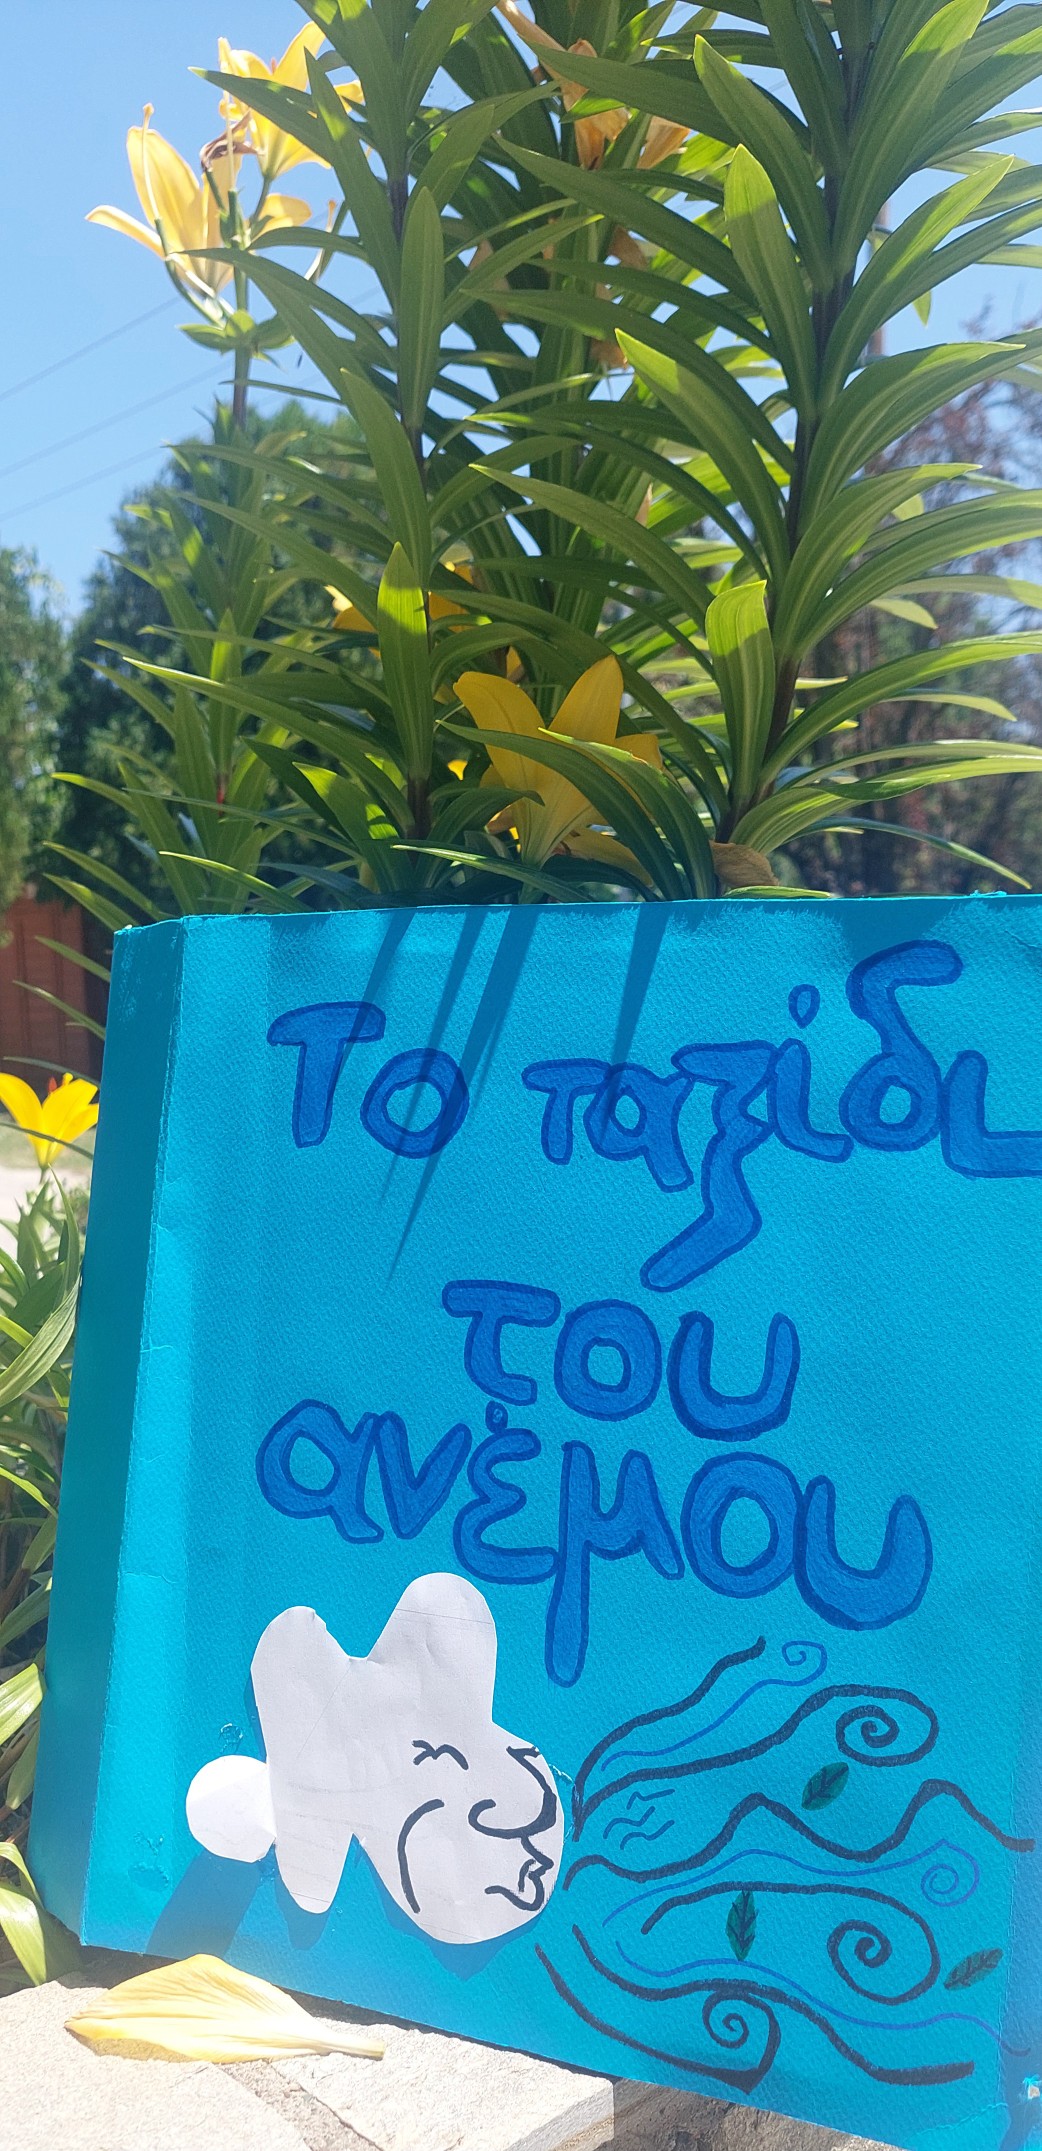 Το ταξίδι
του
ανέμου